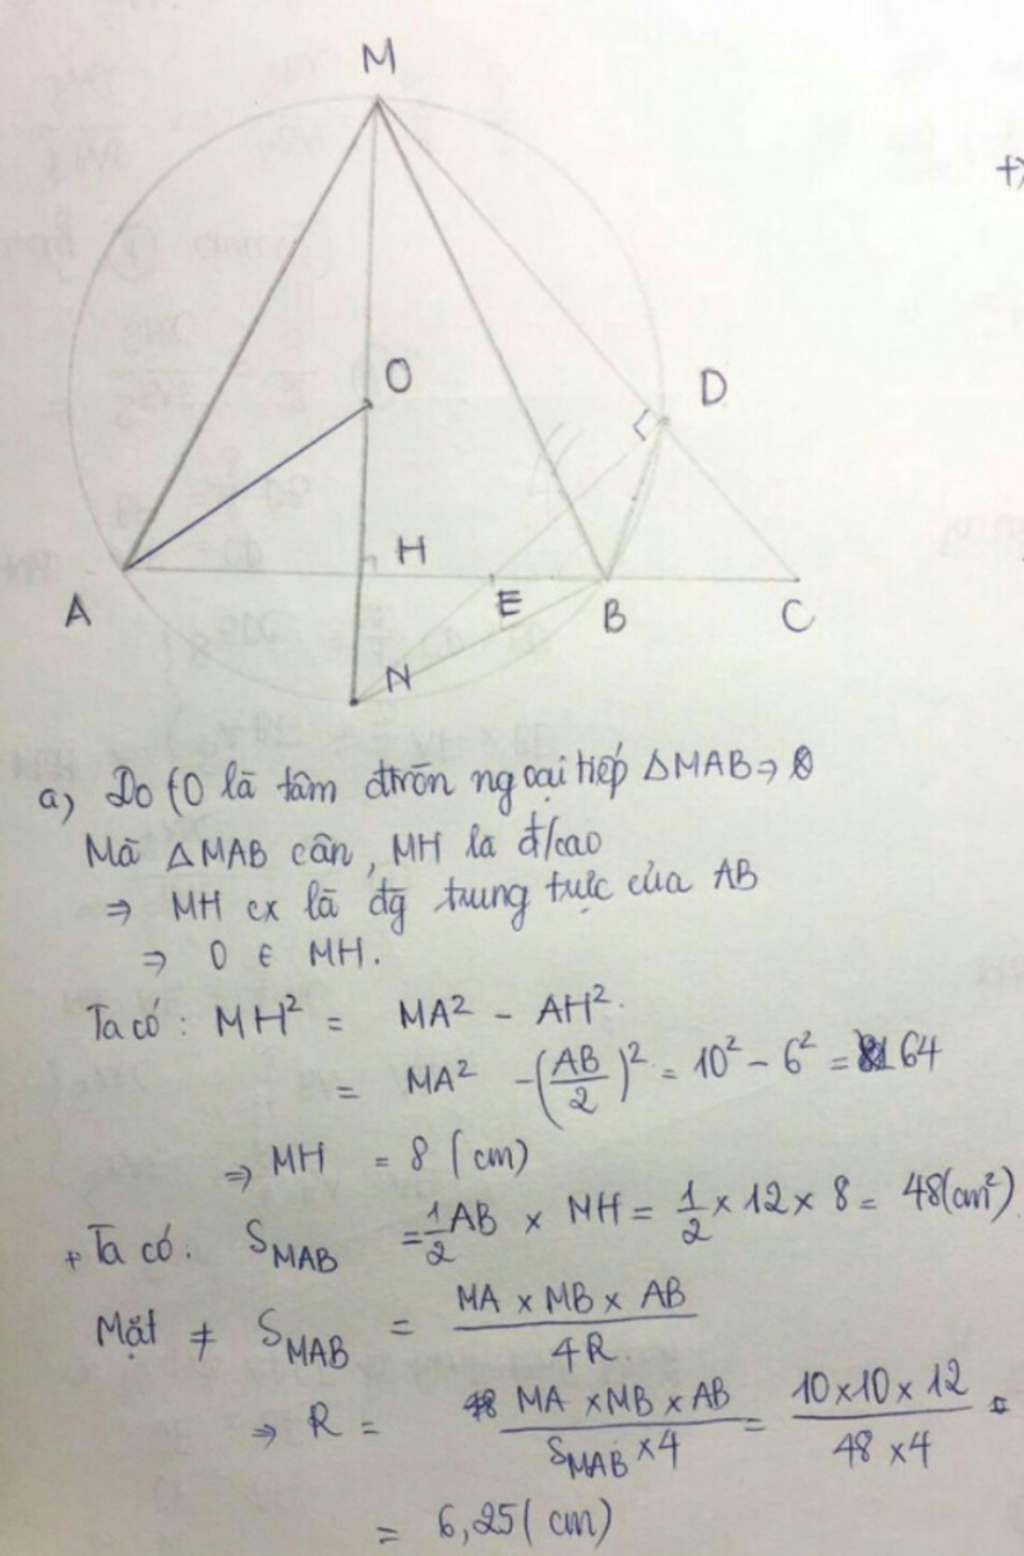 M
+)
O
D
H
A
E
B
C
N
a) Do (O là tâm đtròn ngoại tiếp ΔMAB ⇒
Mà ΔMAB cân, MH là đ/cao
⇒ MH cx là đg trung trực của AB
⇒ O ∈ MH.
Ta có: MH² = MA² - AH².
= MA² - (AB/2)² = 10² - 6² = 64
⇒ MH = 8 (cm)
+ Ta có. S_MAB = 1/2 AB × MH = 1/2 × 12 × 8 = 48(cm²)
Mặt ≠ S_MAB = MA × MB × AB / 4R.
⇒ R = MA × MB × AB / S_MAB × 4 = 10 × 10 × 12 / 48 × 4 =
= 6,25 (cm)